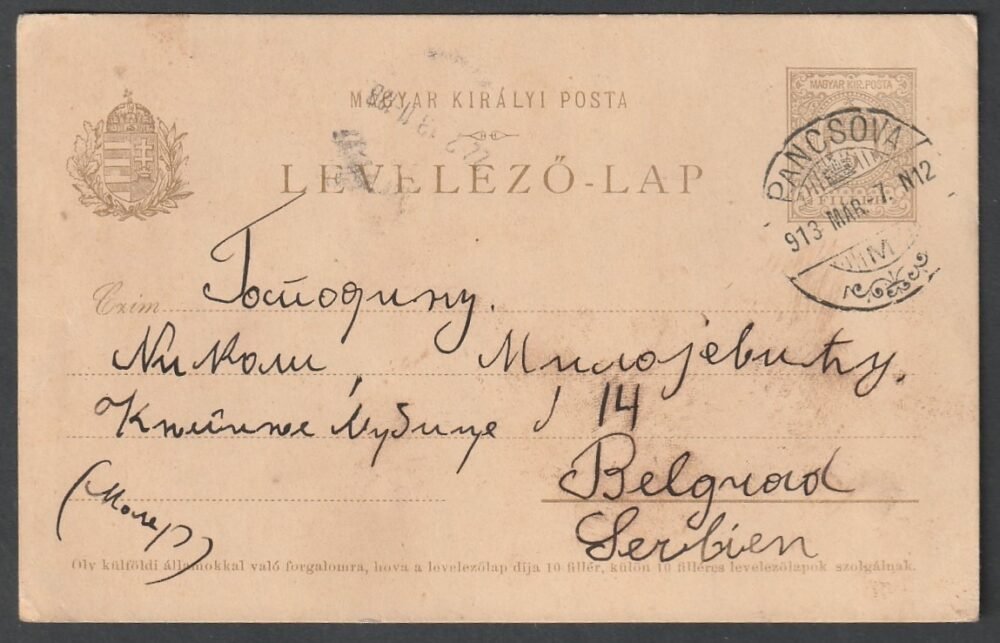 MAGYAR KIRÁLYI POSTA
LEVELEZŐ-LAP
MAGYAR KIR. POSTA
PANCSOVA
913 MAR.-7. N12
M
Czim
Господину.
Николи Милојевићу.
14
Belgrad
Serbien
(Молер)
Oly külföldi államokkal való forgalomra, hova a levelezőlap díja 10 fillér, külön 10 filléres levelezőlapok szolgálnak.